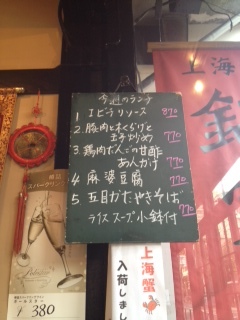 今週のランチ
1 エビチリソース 870
2. 豚肉ときくらげと
玉子炒め 770
3 鶏肉だんごの甘酢
あんかけ 770
4 麻婆豆腐 770
5 五目かたやきそば 770
ライス スープ 小鉢付
上海
上海蟹
入荷しまし
¥380